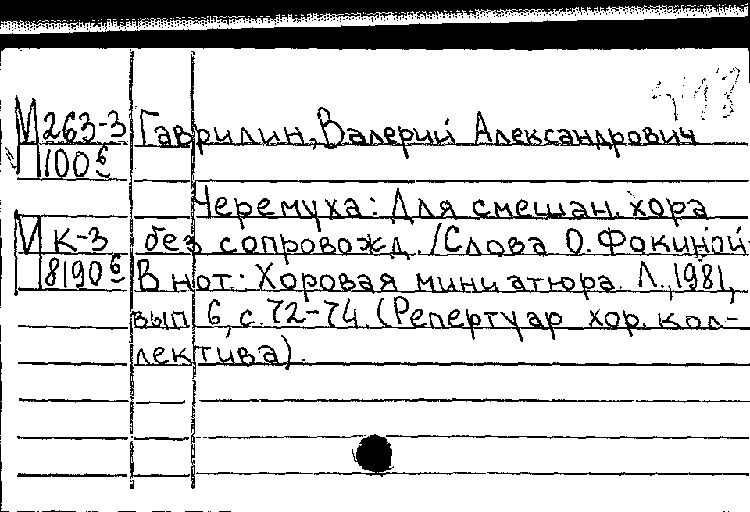 М 263-3 Гаврилин, Валерий Александрович
П 100 б
Черемуха: Для смешан. хора
М К-3 без сопровожд. /Слова О. Фокиной
П 8190 б В нот: Хоровая миниатюра. Л., 1981,
вып 6, с. 72-74. (Репертуар хор. кол-
лектива).